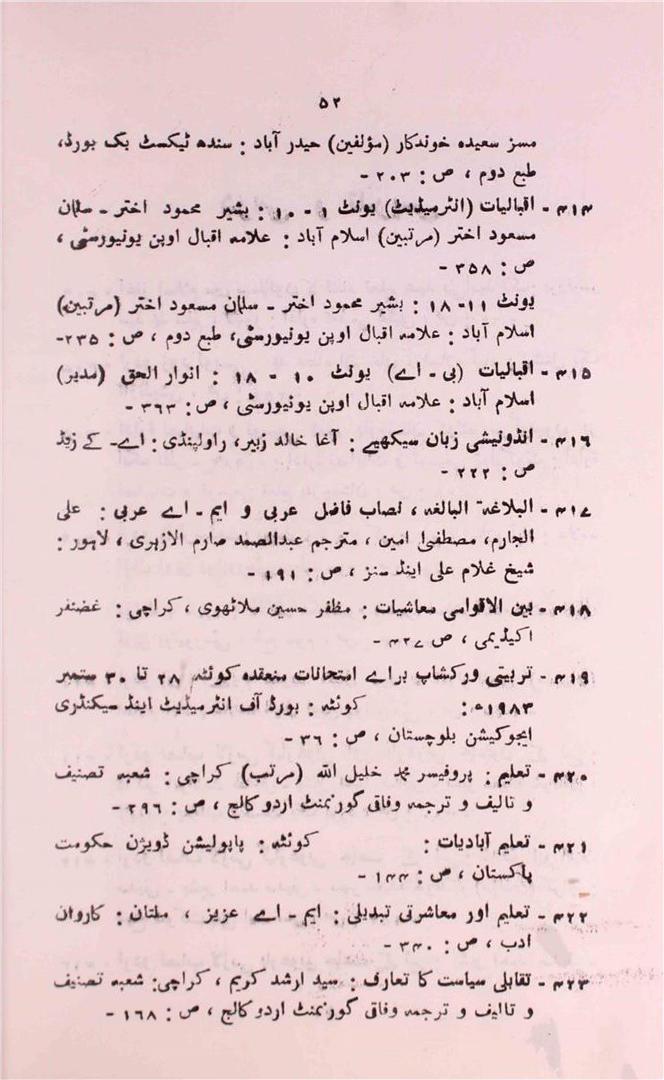 ۵۲
مسز سعیدہ خوندکار (مؤلفین) حیدر آباد : سندھ ٹیکسٹ بک بورڈ،
طبع دوم ، ص : ۲۰۳ -
۴۱۴ - اقبالیات (انٹرمیڈیٹ) یونٹ ۱ - ۱۰ : بشیر محمود اختر - سلمان
مسعود اختر (مرتبین) اسلام آباد : علامہ اقبال اوپن یونیورسٹی ،
ص : ۳۵۸ -
یونٹ ۱۱- ۱۸ : بشیر محمود اختر - سلمان مسعود اختر (مرتبین)
اسلام آباد : علامہ اقبال اوپن یونیورسٹی، طبع دوم ، ص : ۲۳۵-
۴۱۵ - اقبالیات (بی - اے) یونٹ ۱۰ - ۱۸ : انوار الحق (مدیر)
اسلام آباد : علامہ اقبال اوپن یونیورسٹی ، ص : ۳۶۳ -
۴۱۶ - انڈونیشی زبان سیکھیے : آغا خالد زبیر، راولپنڈی : اے - کے زیڈ
ص : ۲۲۲ -
۴۱۷ - البلاغۃ البالغہ ، نصاب فاضل عربی و ایم - اے عربی : علی
الجارم، مصطفیٰ امین ، مترجم عبدالصمد صارم الازہری ، لاہور :
شیخ غلام علی اینڈ سنز ، ص : ۱۹۱ -
۴۱۸ - بین الاقوامی معاشیات : مظفر حسین ملاٹھوی ، کراچی : غضنفر
اکیڈیمی ، ص ۴۲۷ -
۴۱۹ - تربیتی ورکشاپ براے امتحانات منعقدہ کوئٹہ ۲۸ تا ۳۰ ستمبر
۱۹۸۳ء : کوئٹہ : بورڈ آف انٹرمیڈیٹ اینڈ سیکنڈری
ایجوکیشن بلوچستان ، ص : ۳۶ -
۴۲۰ - تعلیم : پروفیسر محمد خلیل اللہ (مرتب) کراچی : شعبہ تصنیف
و تالیف و ترجمہ وفاقی گورنمنٹ اردو کالج ، ص : ۲۹۶ -
۴۲۱ - تعلیم آبادیات : کوئٹہ : پاپولیشن ڈویژن حکومت
پاکستان ، ص : ۱۴۴ -
۴۲۲ - تعلیم اور معاشرتی تبدیلی : ایم - اے عزیز ، ملتان : کاروان
ادب ، ص : ۳۴۰ -
۴۲۳ - تقابلی سیاست کا تعارف : سید ارشد کریم ، کراچی : شعبہ تصنیف
و تالیف و ترجمہ وفاقی گورنمنٹ اردو کالج ، ص : ۱۶۸ -